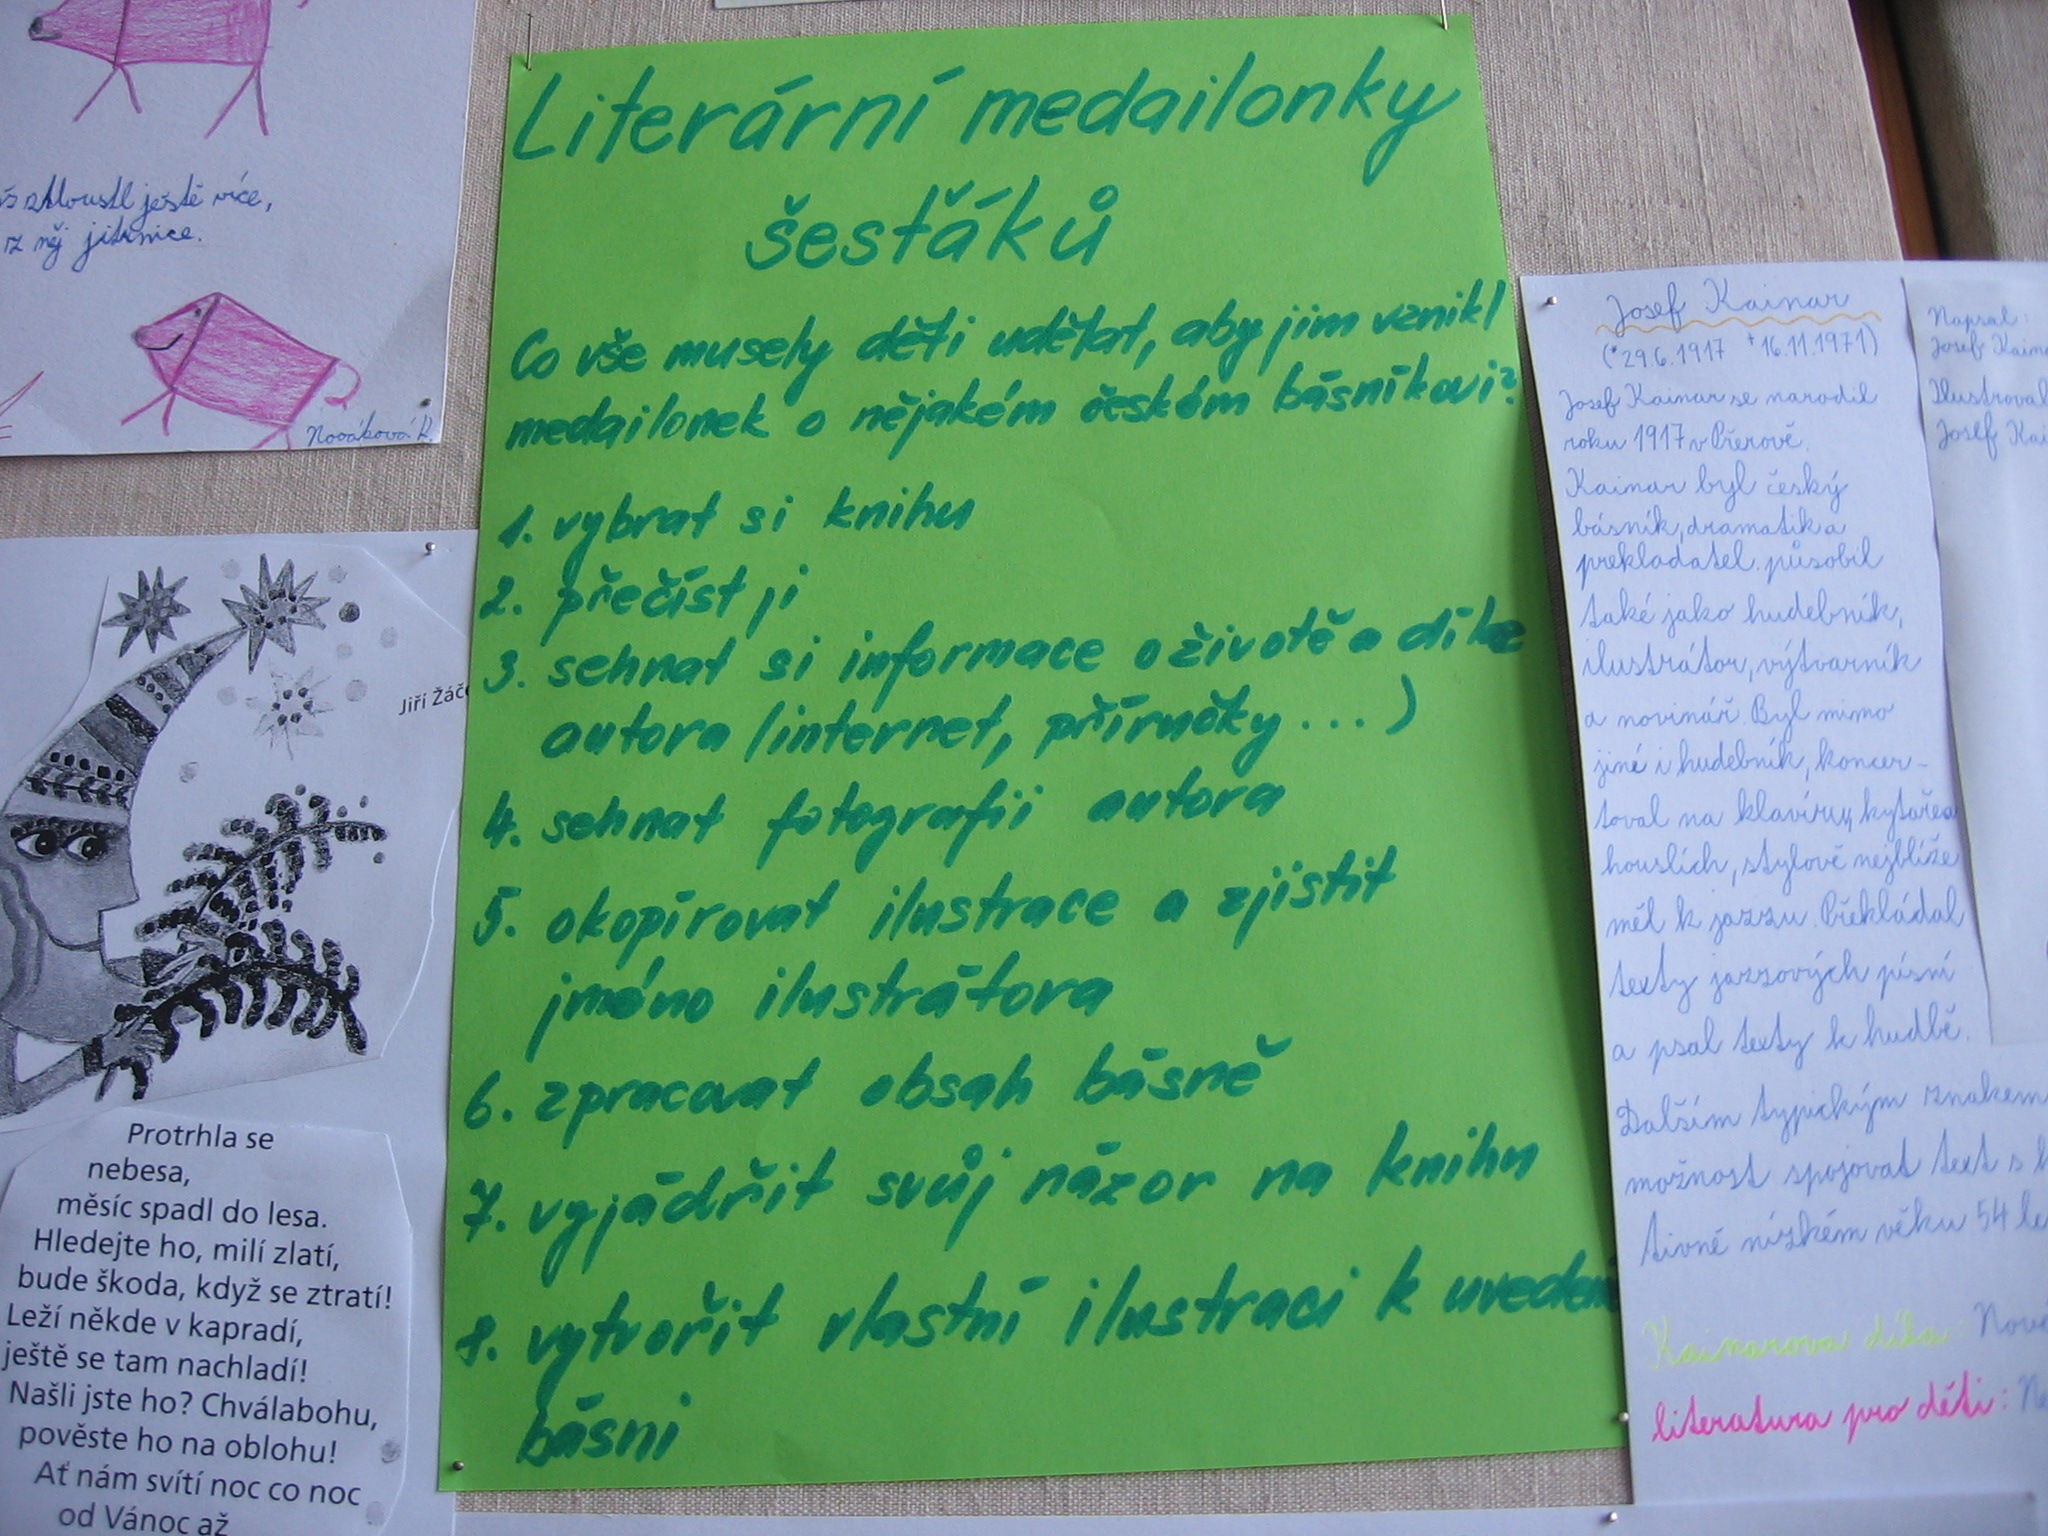 ztloustl ještě více,
z něj jitrnice.
Nováková K.
Literární medailonky
šesťáků
Co vše musely děti udělat, aby jim vznikl
medailonek o nějakém českém básníkovi?
1. vybrat si knihu
2. přečíst ji
3. sehnat si informace o životě a díle
autora (internet, příručky...)
4. sehnat fotografii autora
5. okopírovat ilustrace a zjistit
jméno ilustrátora
6. zpracovat obsah básně
7. vyjádřit svůj názor na knihu
8. vytvořit vlastní ilustraci k uvedené
básni
Jiří
Protrhla se
nebesa,
měsíc spadl do lesa.
Hledejte ho, milí zlatí,
bude škoda, když se ztratí!
Leží někde v kapradí,
ještě se tam nachladí!
Našli jste ho? Chválabohu,
pověste ho na oblohu!
Ať nám svítí noc co noc
od Vánoc až
Josef Kainar
(*29.6.1917 †16.11.1971)
Josef Kainar se narodil
roku 1917 v Přerově.
Kainar byl český
básník, dramatik a
překladatel. působil
také jako hudebník,
ilustrátor, výtvarník
a novinář. Byl mimo
jiné i hudebník, koncer-
toval na klavíru, kytaře a
houslích, stylově nejblíže
měl k jazzu. Překládal
texty jazzových písní
a psal texty k hudbě.
Dalším typickým znakem
možnost spojovat text s
tivně nízkém věku 54
Kainarova díla:
literatura pro děti:
Napsal:
Josef
Ilustroval
Josef